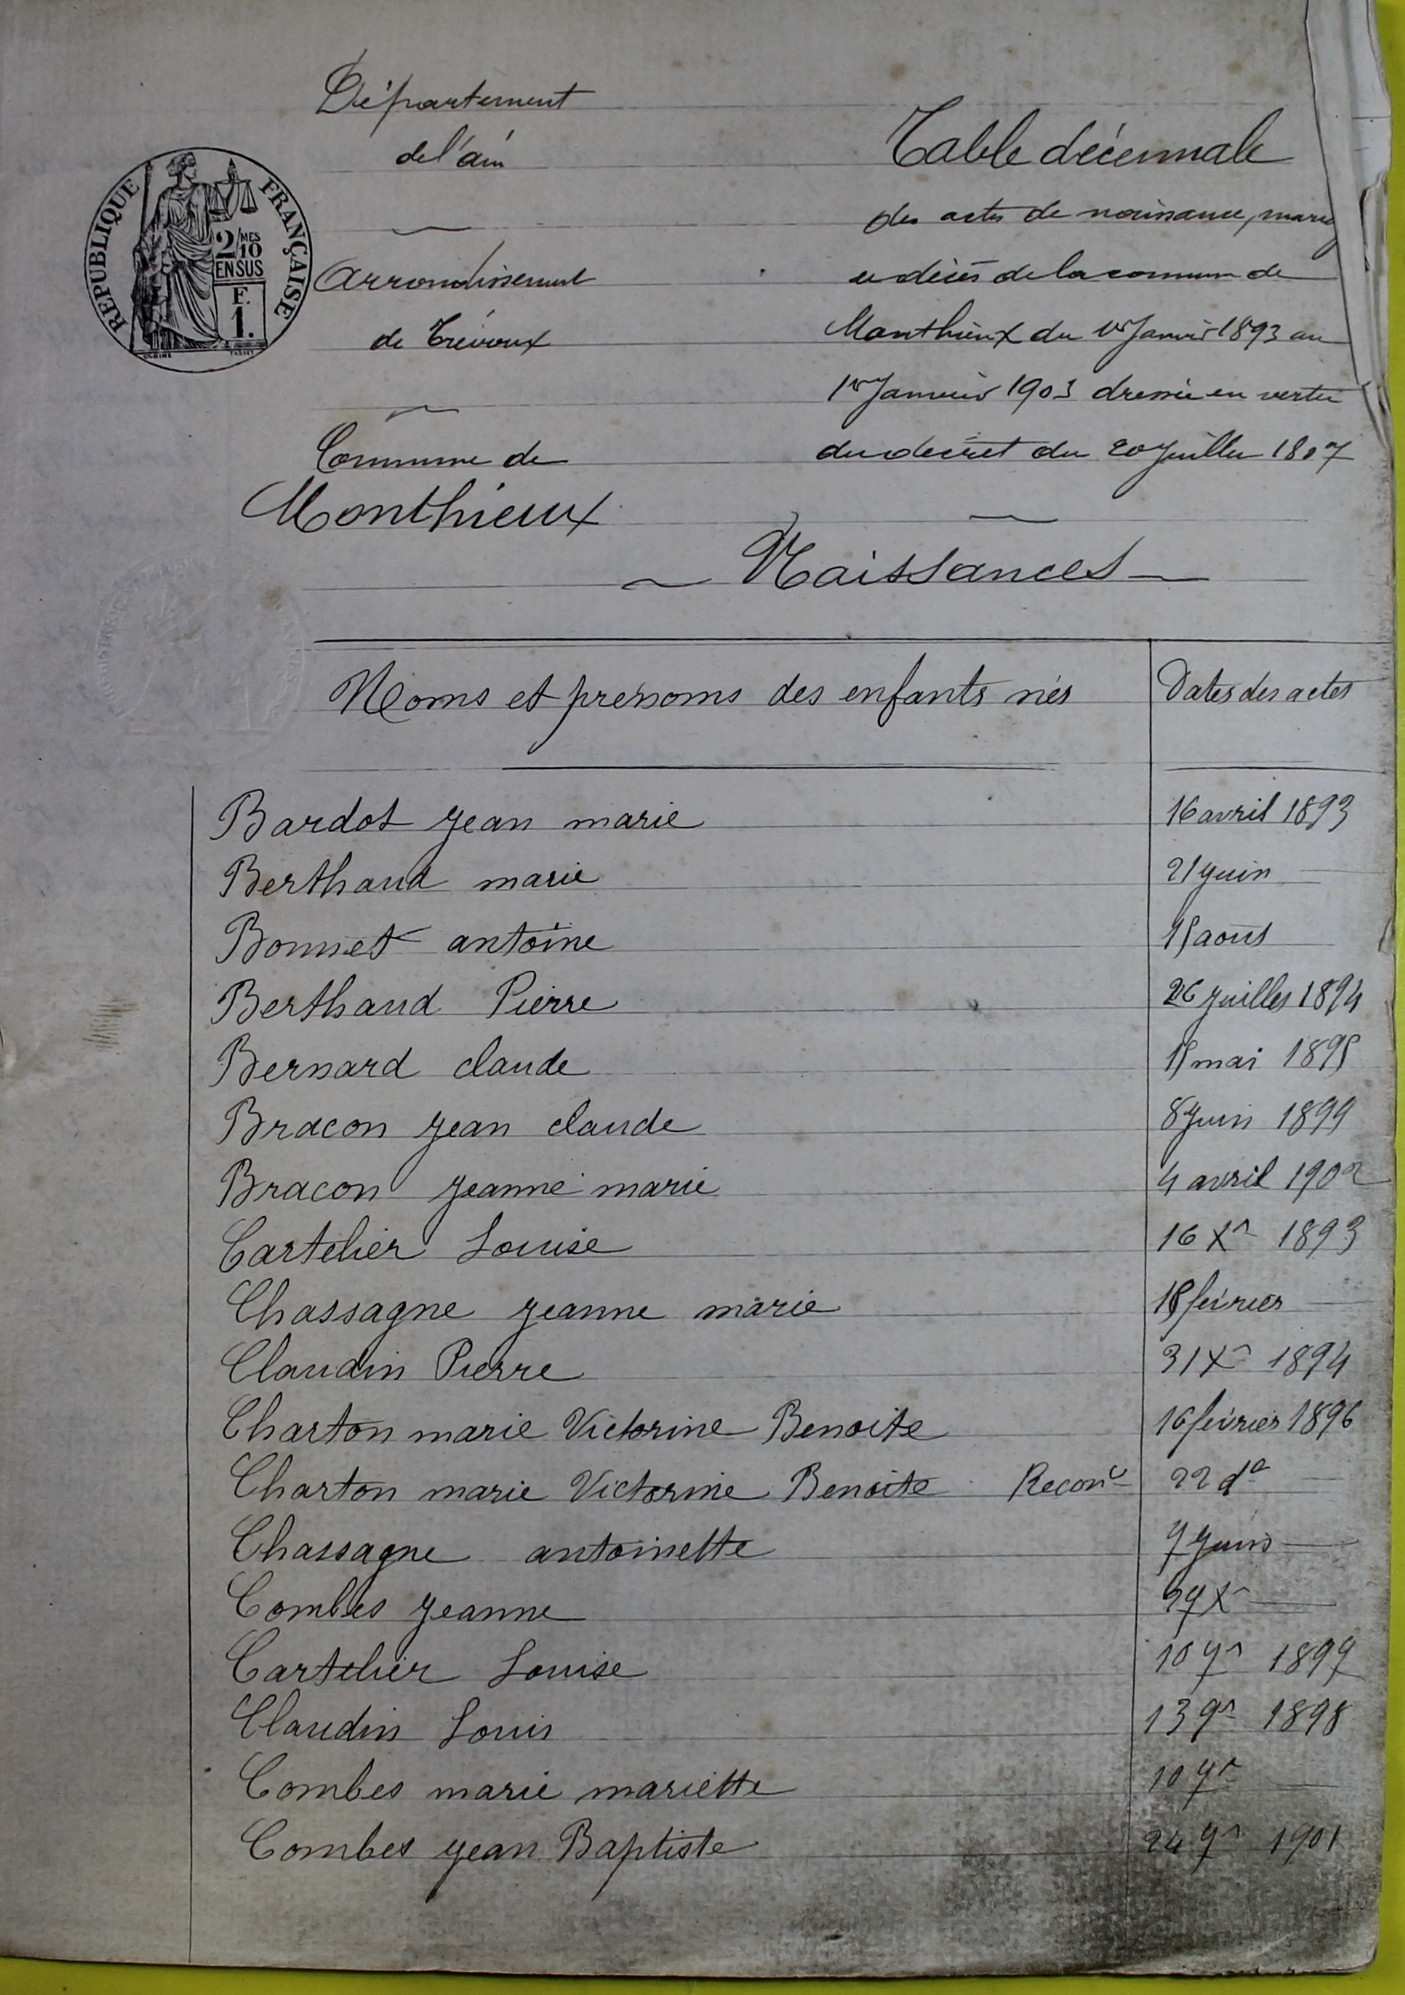 Département
de l'ain
Arrondissement
de Trévoux
Commune de
Monthieux
RÉPUBLIQUE FRANÇAISE
2/10 MES
EN SUS
F.
1.
Table décennale
des actes de naissance, mariag
et décès de la commune de
Monthieux du 1er Janvier 1893 au
1er Janvier 1903 dressée en vertu
du décret du 20 Juillet 1807
Naissances
Noms et prenoms des enfants nés | Dates des actes
Bardot jean marie 16 avril 1893
Berthaud marie 21 juin
Bonnet antoine 15 aout
Berthaud Pierre 26 juillet 1894
Bernard claude 15 mai 1895
Bracon jean claude 8 juin 1899
Bracon jeanne marie 4 avril 1902
Cartelier Louise 16 Xr 1893
Chassagne jeanne marie 18 février
Claudin Pierre 31 Xr 1894
Charton marie Victorine Benoite 16 février 1896
Charton marie Victorine Benoite Reconce 22 do
Chassagne antoinette 7 juin
Combes jeanne 27 Xr
Cartelier Louise 10 7r 1897
Claudin Louis 13 9r 1898
Combes marie mariette 10 7r
Combes jean Baptiste 24 7r 1901